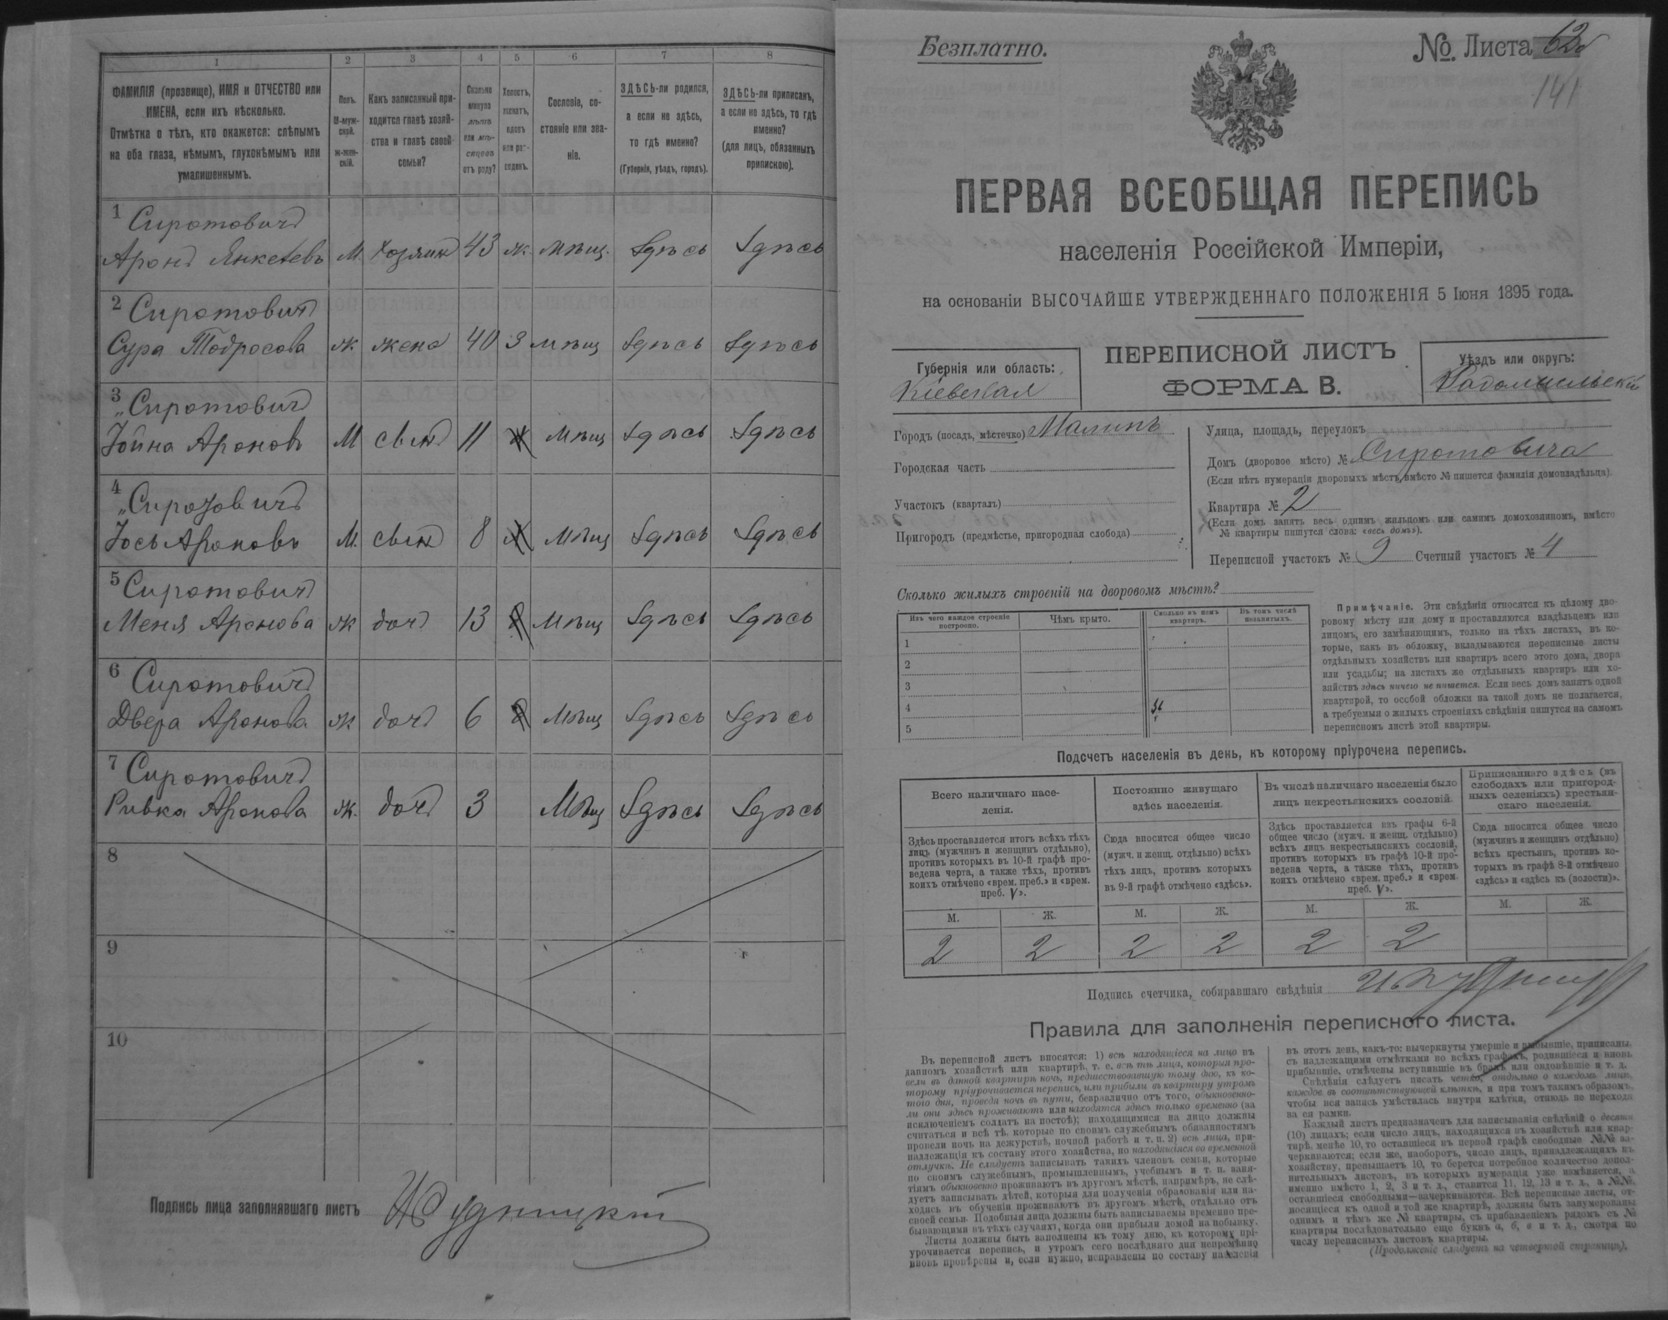 1 2 3 4 5 6 7 8
ФАМИЛІЯ (прозвище), ИМЯ и ОТЧЕСТВО или
ИМЕНА, если ихъ нѣсколько.
Отмѣтка о тѣхъ, кто окажется: слѣпымъ
на оба глаза, нѣмымъ, глухонѣмымъ или
умалишеннымъ.
Полъ.
М-муж-
ской.
ж-жен-
скій.
Какъ записанный при-
ходится главѣ хозяй-
ства и главѣ своей
семьи?
Сколько
минуло
лѣтъ
или мѣ-
сяцевъ
отъ роду?
Холостъ,
женатъ,
вдовъ
или раз-
веденъ.
Сословіе, со-
стояніе или зва-
ніе.
ЗДѢСЬ-ли родился,
а если не здѣсь,
то гдѣ именно?
(Губернія, уѣздъ, городъ).
ЗДѢСЬ-ли приписанъ,
а если не здѣсь, то гдѣ
именно?
(для лицъ, обязанныхъ
припискою).
1 Сиротовичъ
Аронъ Янкелевъ м. хозяин 43 ж. мѣщ. Здѣсь Здѣсь
2 Сиротовичъ
Сура Тодросова ж жена 40 З мѣщ Здѣсь Здѣсь
3 „Сиротовичъ
Іойна Ароновъ М сын 11 мѣщ Здѣсь Здѣсь
4 „Сиротовичъ
Іось Ароновъ М. сын 8 мѣщ Здѣсь Здѣсь
5 Сиротовичъ
Меня Аронова ж дочъ 13 мѣщ Здѣсь Здѣсь
6 Сиротовичъ
Двера Аронова ж дочъ 6 мѣщ Здѣсь Здѣсь
7 Сиротовичъ
Ривка Аронова ж. дочъ 3 мѣщ Здѣсь Здѣсь
8
9
10
Подпись лица заполнявшаго листъ
Безплатно.
№ Листа
141
ПЕРВАЯ ВСЕОБЩАЯ ПЕРЕПИСЬ
населенія Россійской Имперіи,
на основаніи ВЫСОЧАЙШЕ УТВЕРЖДЕННАГО ПОЛОЖЕНІЯ 5 Іюня 1895 года.
Губернія или область:
Кіевская
ПЕРЕПИСНОЙ ЛИСТЪ
ФОРМА В.
Уѣздъ или округъ:
Радомысльскій
Городъ (посадъ, мѣстечко) Малинъ
Городская часть
Участокъ (кварталъ)
Пригородъ (предмѣстье, пригородная слобода)
Улица, площадь, переулокъ
Домъ (дворовое мѣсто) № Сиротовича
(Если нѣтъ нумераціи дворовыхъ мѣстъ, вмѣсто № пишется фамилія домовладѣльца).
Квартира № 2
(Если домъ занятъ весь однимъ жильцомъ или самимъ домохозяиномъ, вмѣсто
№ квартиры пишутся слова: «весь домъ»).
Переписной участокъ № 9 Счетный участокъ № 4
Сколько жилыхъ строеній на дворовомъ мѣстѣ?
Изъ чего каждое строеніе
построено.
Чѣмъ крыто.
Сколько въ немъ
квартиръ.
Въ томъ числѣ
незанятыхъ.
1
2
3
4
5
Примѣчаніе. Эти свѣдѣнія относятся къ цѣлому дво-
ровому мѣсту или дому и проставляются владѣльцемъ или
лицомъ, его замѣняющимъ, только на тѣхъ листахъ, въ ко-
торые, какъ въ обложку, вкладываются переписные листы
отдѣльныхъ хозяйствъ или квартиръ всего этого дома, двора
или усадьбы; на листахъ же отдѣльныхъ квартиръ или хо-
зяйствъ здѣсь ничего не пишется. Если весь домъ занятъ одной
квартирой, то особой обложки на такой домъ не полагается,
а требуемыя о жилыхъ строеніяхъ свѣдѣнія пишутся на самомъ
переписномъ листѣ этой квартиры.
Подсчетъ населенія въ день, къ которому пріурочена перепись.
Всего наличнаго насе-
ленія.
Постоянно живущаго
здѣсь населенія.
Въ числѣ наличнаго населенія было
лицъ некрестьянскихъ сословій.
Приписаннаго здѣсь (въ
слободахъ или пригород-
ныхъ селеніяхъ) крестьян-
скаго населенія.
Здѣсь проставляется итогъ всѣхъ тѣхъ
лицъ (мужчинъ и женщинъ отдѣльно),
противъ которыхъ въ 10-й графѣ про-
ведена черта, а также тѣхъ, противъ
коихъ отмѣчено «врем. преб.» и «врем.
преб. V».
Сюда вносится общее число
(мужч. и женщ. отдѣльно) всѣхъ
тѣхъ лицъ, противъ которыхъ
въ 9-й графѣ отмѣчено «здѣсь».
Здѣсь проставляется изъ графы 6-й
общее число (мужч. и женщ. отдѣльно)
всѣхъ лицъ некрестьянскихъ сословій,
противъ которыхъ въ графѣ 10-й про-
ведена черта, а также тѣхъ, противъ
коихъ отмѣчено «врем. преб.» и «врем.
преб. V».
Сюда вносится общее число
(мужчинъ и женщинъ отдѣльно)
всѣхъ крестьянъ, противъ ко-
торыхъ въ графѣ 8-й отмѣчено
«здѣсь» и «здѣсь къ (волости)».
М. Ж. М. Ж. М. Ж. М. Ж.
2 2 2 2 2 2
Подпись счетчика, собиравшаго свѣдѣнія
Правила для заполненія переписного листа.
Въ переписной листъ вносятся: 1) всѣ находящіеся на лицо въ
данномъ хозяйствѣ или квартирѣ, т. е. всѣ тѣ лица, которыя про-
вели въ данной квартирѣ ночь, предшествовавшую тому дню, къ ко-
торому пріурочивается перепись, или прибыли въ квартиру утромъ
того дня, проведя ночь въ пути, безразлично отъ того, обыкновенно-
ли они здѣсь проживаютъ или находятся здѣсь только временно (за
исключеніемъ солдатъ на постоѣ); находящимися на лицо должны
считаться и всѣ тѣ, которые по своимъ служебнымъ обязанностямъ
провели ночь на дежурствѣ, ночной работѣ и т. п. 2) всѣ лица, при-
надлежащія къ составу этого хозяйства, но находящіяся во временной
отлучкѣ. Не слѣдуетъ записывать такихъ членовъ семьи, которые
по своимъ служебнымъ, промышленнымъ, учебнымъ и т. п. заня-
тіямъ обыкновенно проживаютъ въ другомъ мѣстѣ, напримѣръ, не слѣ-
дуетъ записывать дѣтей, которыя для полученія образованія или на-
ходясь въ обученіи проживаютъ въ другомъ мѣстѣ, отдѣльно отъ
своей семьи. Подобныя лица должны быть записываемы временно пре-
бывающими въ тѣхъ случаяхъ, когда они прибыли домой на побывку.
Листы должны быть заполнены къ тому дню, къ которому прі-
урочивается перепись, и утромъ сего послѣдняго дня непремѣнно
вновь провѣрены и, если нужно, исправлены по составу населенія
въ этотъ день, какъ-то: вычеркнуты умершіе и выбывшіе, приписаны,
съ надлежащими отмѣтками во всѣхъ графахъ, родившіеся и вновь
прибывшіе, отмѣчены вступившіе въ бракъ или овдовѣвшіе и т. д.
Свѣдѣнія слѣдуетъ писать четко, отдѣльно о каждомъ лицѣ,
каждое въ соотвѣтствующей клѣткѣ, и при томъ такимъ образомъ,
чтобы вся запись умѣстилась внутри клѣтки, отнюдь не переходя
за ея рамки.
Каждый листъ предназначенъ для записыванія свѣдѣній о десяти
(10) лицахъ; если число лицъ, находящихся въ хозяйствѣ или квар-
тирѣ, менѣе 10, то оставшіеся въ первой графѣ свободные №№ за-
черкиваются; если же, наоборотъ, число лицъ, принадлежащихъ къ
хозяйству, превышаетъ 10, то берется потребное количество допол-
нительныхъ листовъ, въ которыхъ нумерація уже измѣняется, а
именно вмѣсто 1, 2, 3 и т. д., ставится 11, 12, 13 и т. д., а №№
оставшіеся свободными—зачеркиваются. Всѣ переписные листы, от-
носящіеся къ одной и той же квартирѣ, должны быть занумерованы
однимъ и тѣмъ же № квартиры, съ прибавленіемъ рядомъ съ №
квартиры послѣдовательно еще буквъ а, б, в и т. д., смотря по
числу переписныхъ листовъ квартиры.
(Продолженіе слѣдуетъ на четвертой страницѣ).